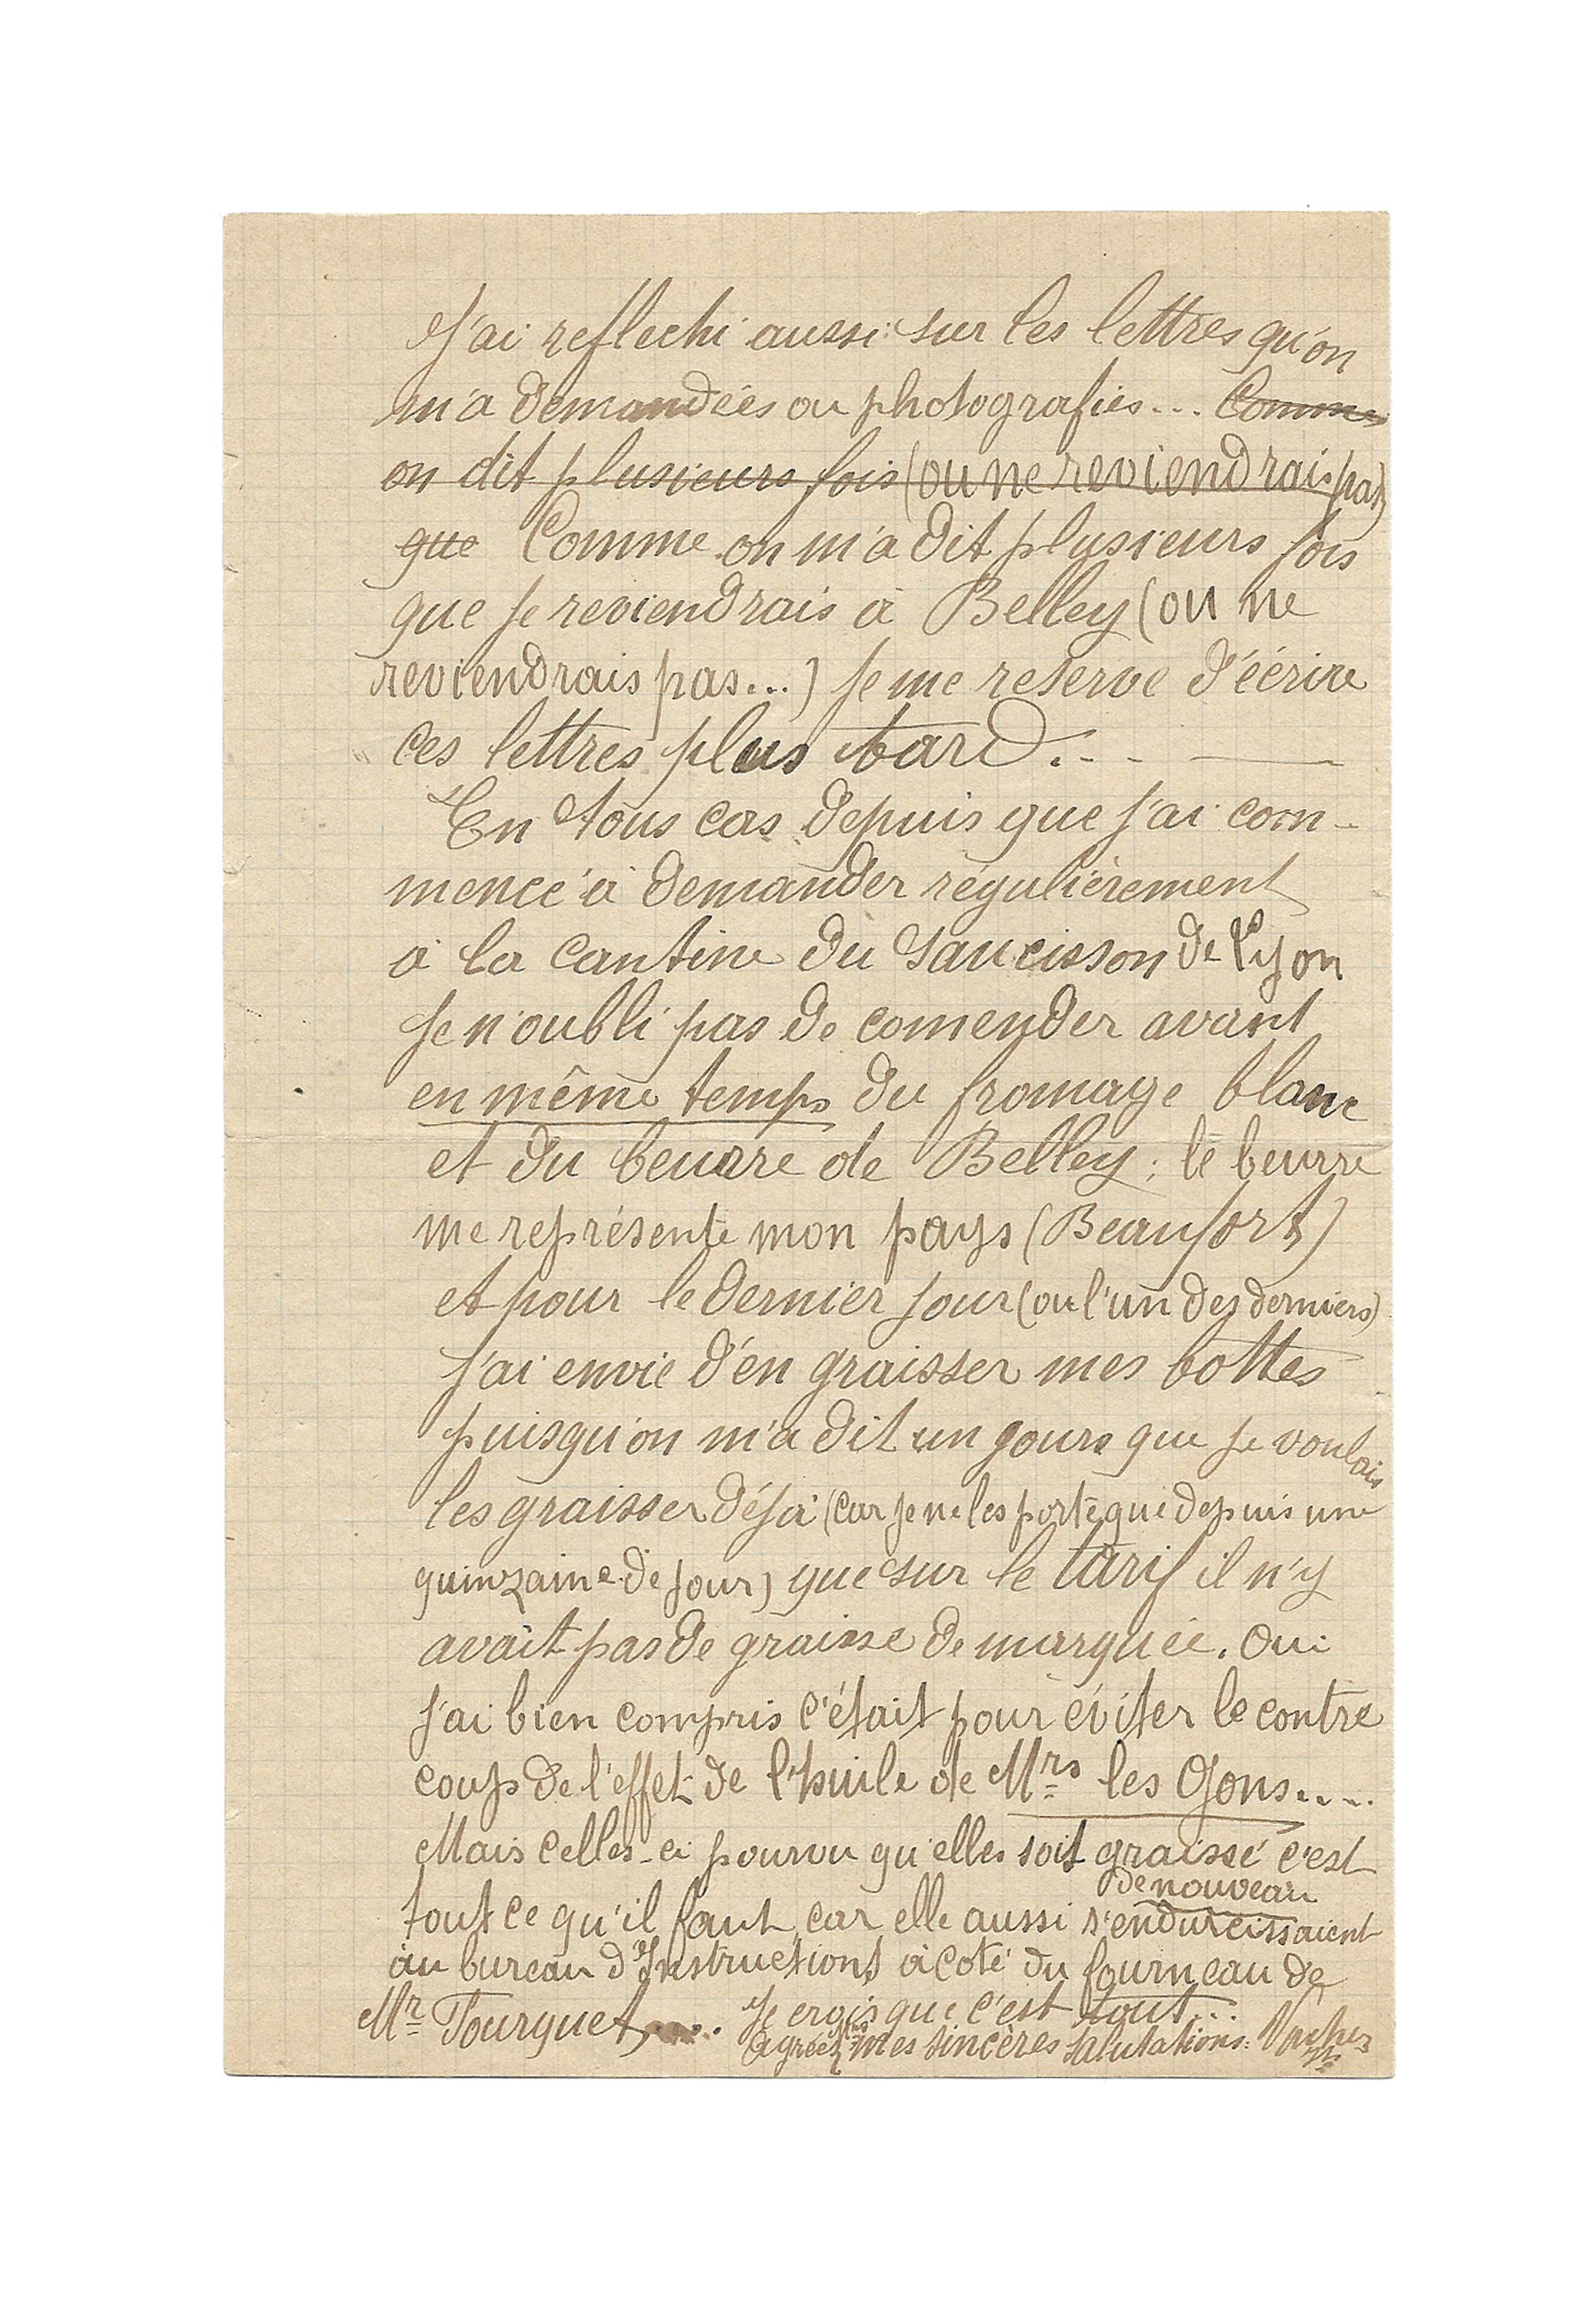 J'ai reflechi aussi sur les lettres qu'on
m'a demandées ou photografies... Comme
on dit plusieurs fois (ou ne reviendrais pas)
que Comme on m'a dit plusieurs fois
que je reviendrais à Belley (ou ne
reviendrais pas...) je me reserve d'écrire
ces lettres plus tard...
En tous cas depuis que j'ai com-
mencé à demander régulièrement
à la cantine du saucisson de Lyon
je n'oubli pas de comender avant
en même temps du fromage blanc
et du beurre de Belley ; le beurre
me représente mon pays (Beaufort)
et pour le dernier jour (ou l'un des derniers)
j'ai envie d'en graisser mes bottes
puisqu'on m'a dit un jours que je voulais
les graisser déjà (car je ne les porte que depuis une
quinzaine de jour) que sur le tarif il n'y
avait pas de graisse de marquée. Oui
j'ai bien compris c'était pour éviter le contre
coup de l'effet de l'huile de Mrs les Gons....
Mais celles-ci pourvu qu'elles soit graissé c'est
de nouveau
tout ce qu'il faut, car elle aussi s'endurcissaient
au bureau d'Instructions à coté du fourneau de
Mr Tourquet.... Je crois que c'est tout...
agréez mes sincères salutations. Vacher